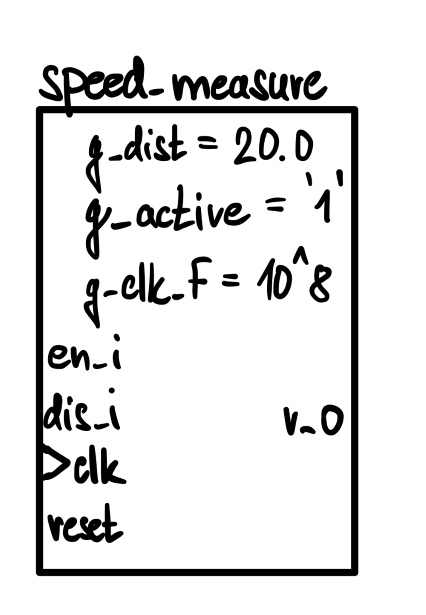 speed_measure
g_dist = 20.0
g_active = '1'
g_clk_F = 10^8
en_i
dis_i
v_o
>clk
reset